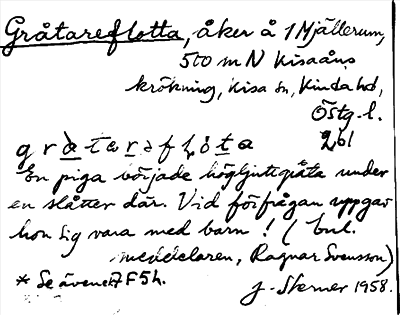 Gråtareflotta, åker å 1 Mjällerum,
500 m N Kisaåns
krökning, Kisa sn, Kinda hd,
Östg. l.
261
En piga började högljutt gråta under
en slåtter där. Vid förfrågan uppgav
hon sig vara med barn! (enl.
meddelaren, Ragnar Svensson)
* Se även F5h.
J. Sterner 1958.